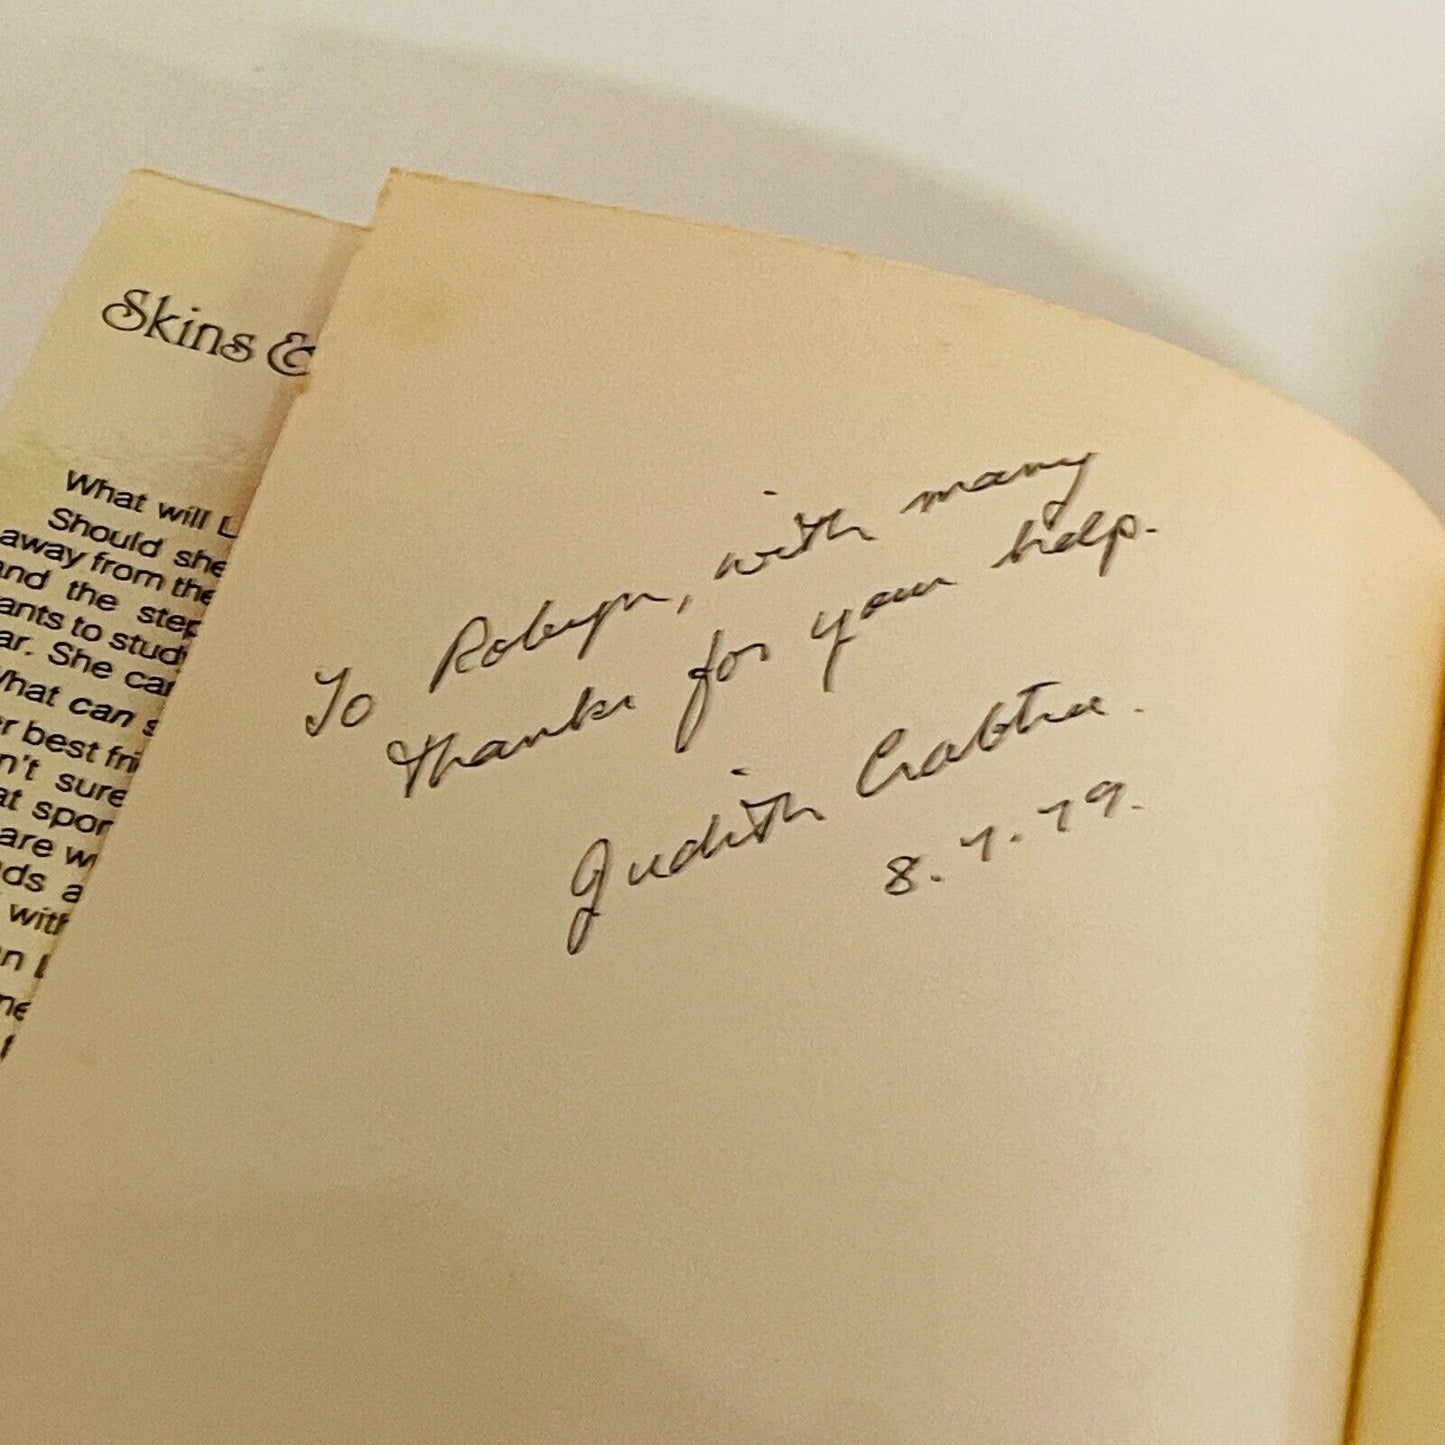 Skins &
What will
Should she
away from the
and the step
ants to study
ar. She can
What can s
er best fri
n't sure
at spor
are w
ds a
with
an
ne
To Robyn, with many
thanks for your help.
Judith Crabtree.
8.7.79.